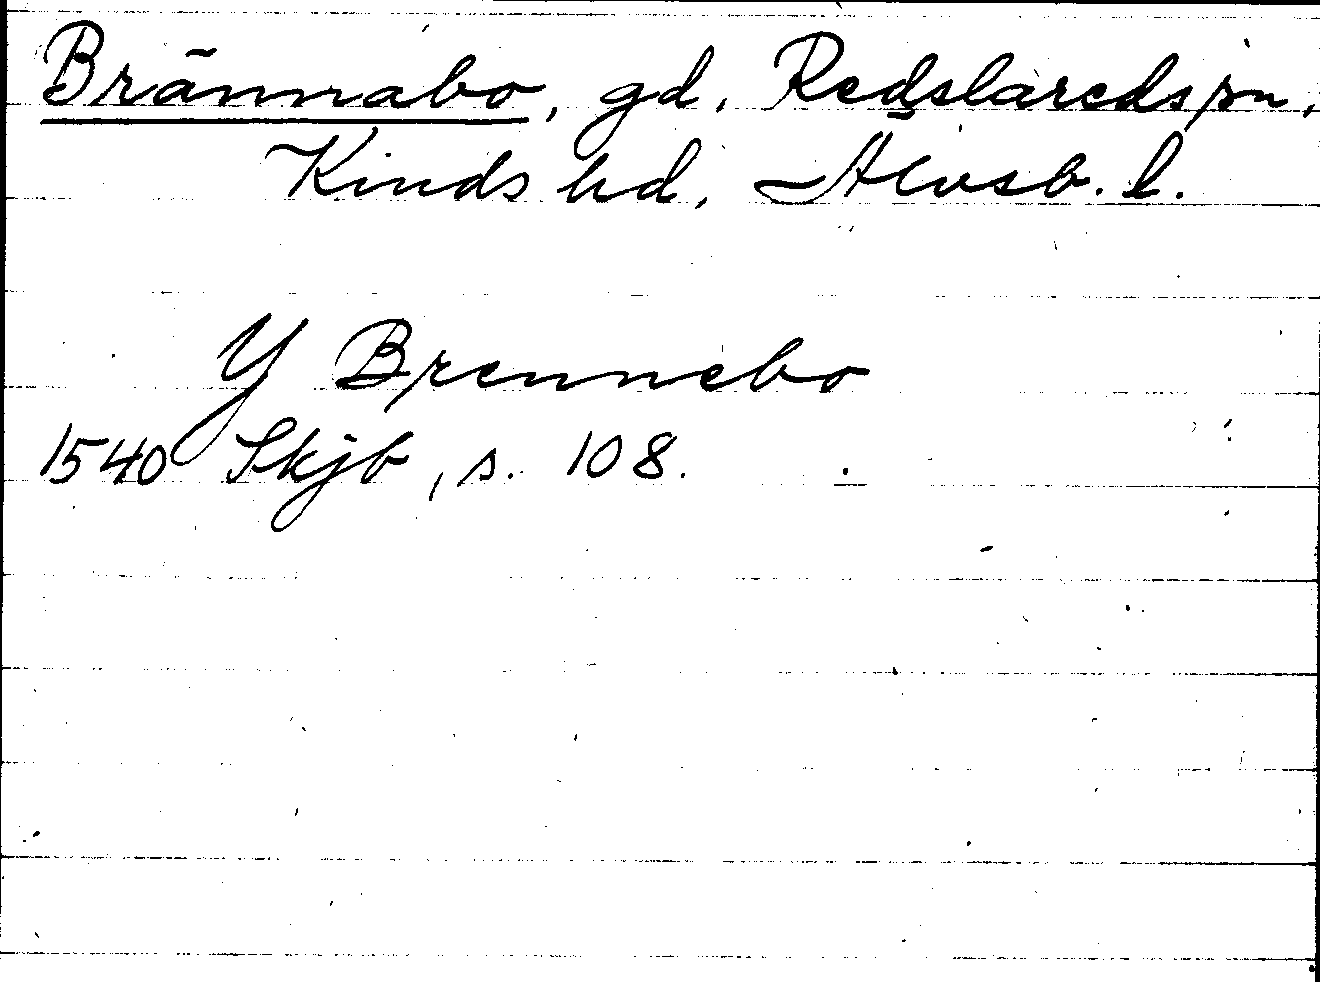 Brännabo, gd, Redslareds sn,
Kinds hd, Älvsb. l.
Y Brennebo
1540 Skjb, s. 108.